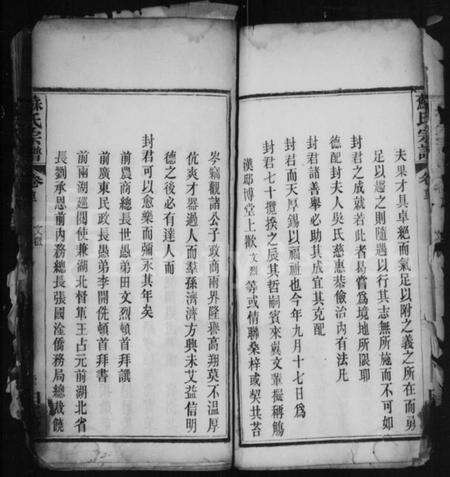 夫果才具卓絕而氣足以附之義之所在而勇
足以趨之則隨遇以行其志無所施而不可如
封君之成就若此者曷嘗為境地所限耶
德配封夫人吳氏慈惠恭儉治內有法凡
封君諸善舉必助其成宜其克配
封君而天厚錫以福祉也今年九月十七日為
封君七十攬揆之辰其哲嗣賓來戴文軰擬稱觴
漢鄂博堂上歡文烈等或情聯桑梓或契其苔
岑竊觀諸公子政商兩界隆譽高翔莫不溫厚
伉爽才器過人而羣孫濟濟方興未艾益信明
德之後必有達人而
封君可以愈樂而彌永其年矣
前農商總長世愚弟田文烈頓首拜譔
前廣東民政長愚弟李開侁頓首拜書
前兩湖巡閱使兼湖北督軍王占元前湖北省
長劉承恩前內務總長張國淦僑務局總裁饒
蘇氏宗譜
卷首
文徵
蘇氏宗譜